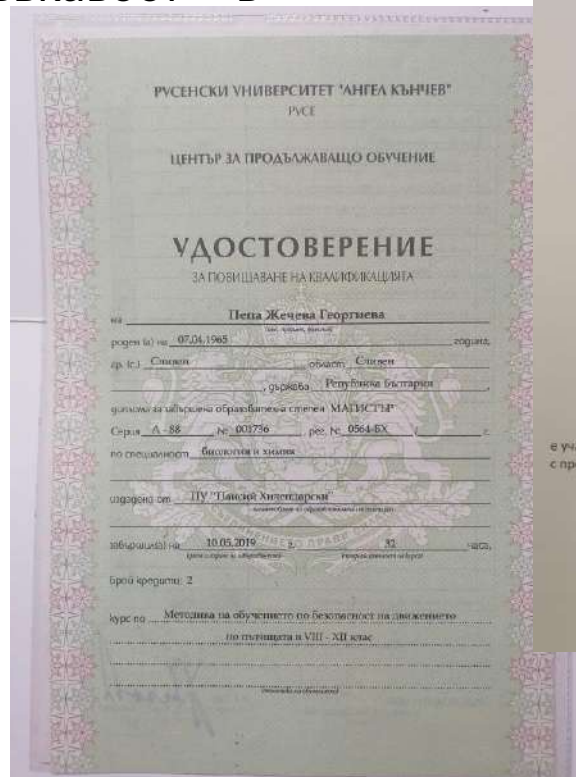 РУСЕНСКИ УНИВЕРСИТЕТ "АНГЕЛ КЪНЧЕВ"
РУСЕ
ЦЕНТЪР ЗА ПРОДЪЛЖАВАЩО ОБУЧЕНИЕ
УДОСТОВЕРЕНИЕ
ЗА ПОВИШАВАНЕ НА КВАЛИФИКАЦИЯТА
на Пепа Жечева Георгиева
роден (а) на 07.04.1965 година,
гр. (с.) Сливен област Сливен
, държава Република България ,
диплома за завършена образователна степен МАГИСТЪР
Серия А - 88 № 001736 , рег. № 0564-БХ / г.
по специалност биология и химия
издадена от ПУ "Паисий Хилендарски"
завърши(а) на 10.05.2019 г. 32 часа,
брой кредити: 2
курс по Методика на обучението по безопасност на движението
по пътищата в VIII - XII клас
е уч
с пр